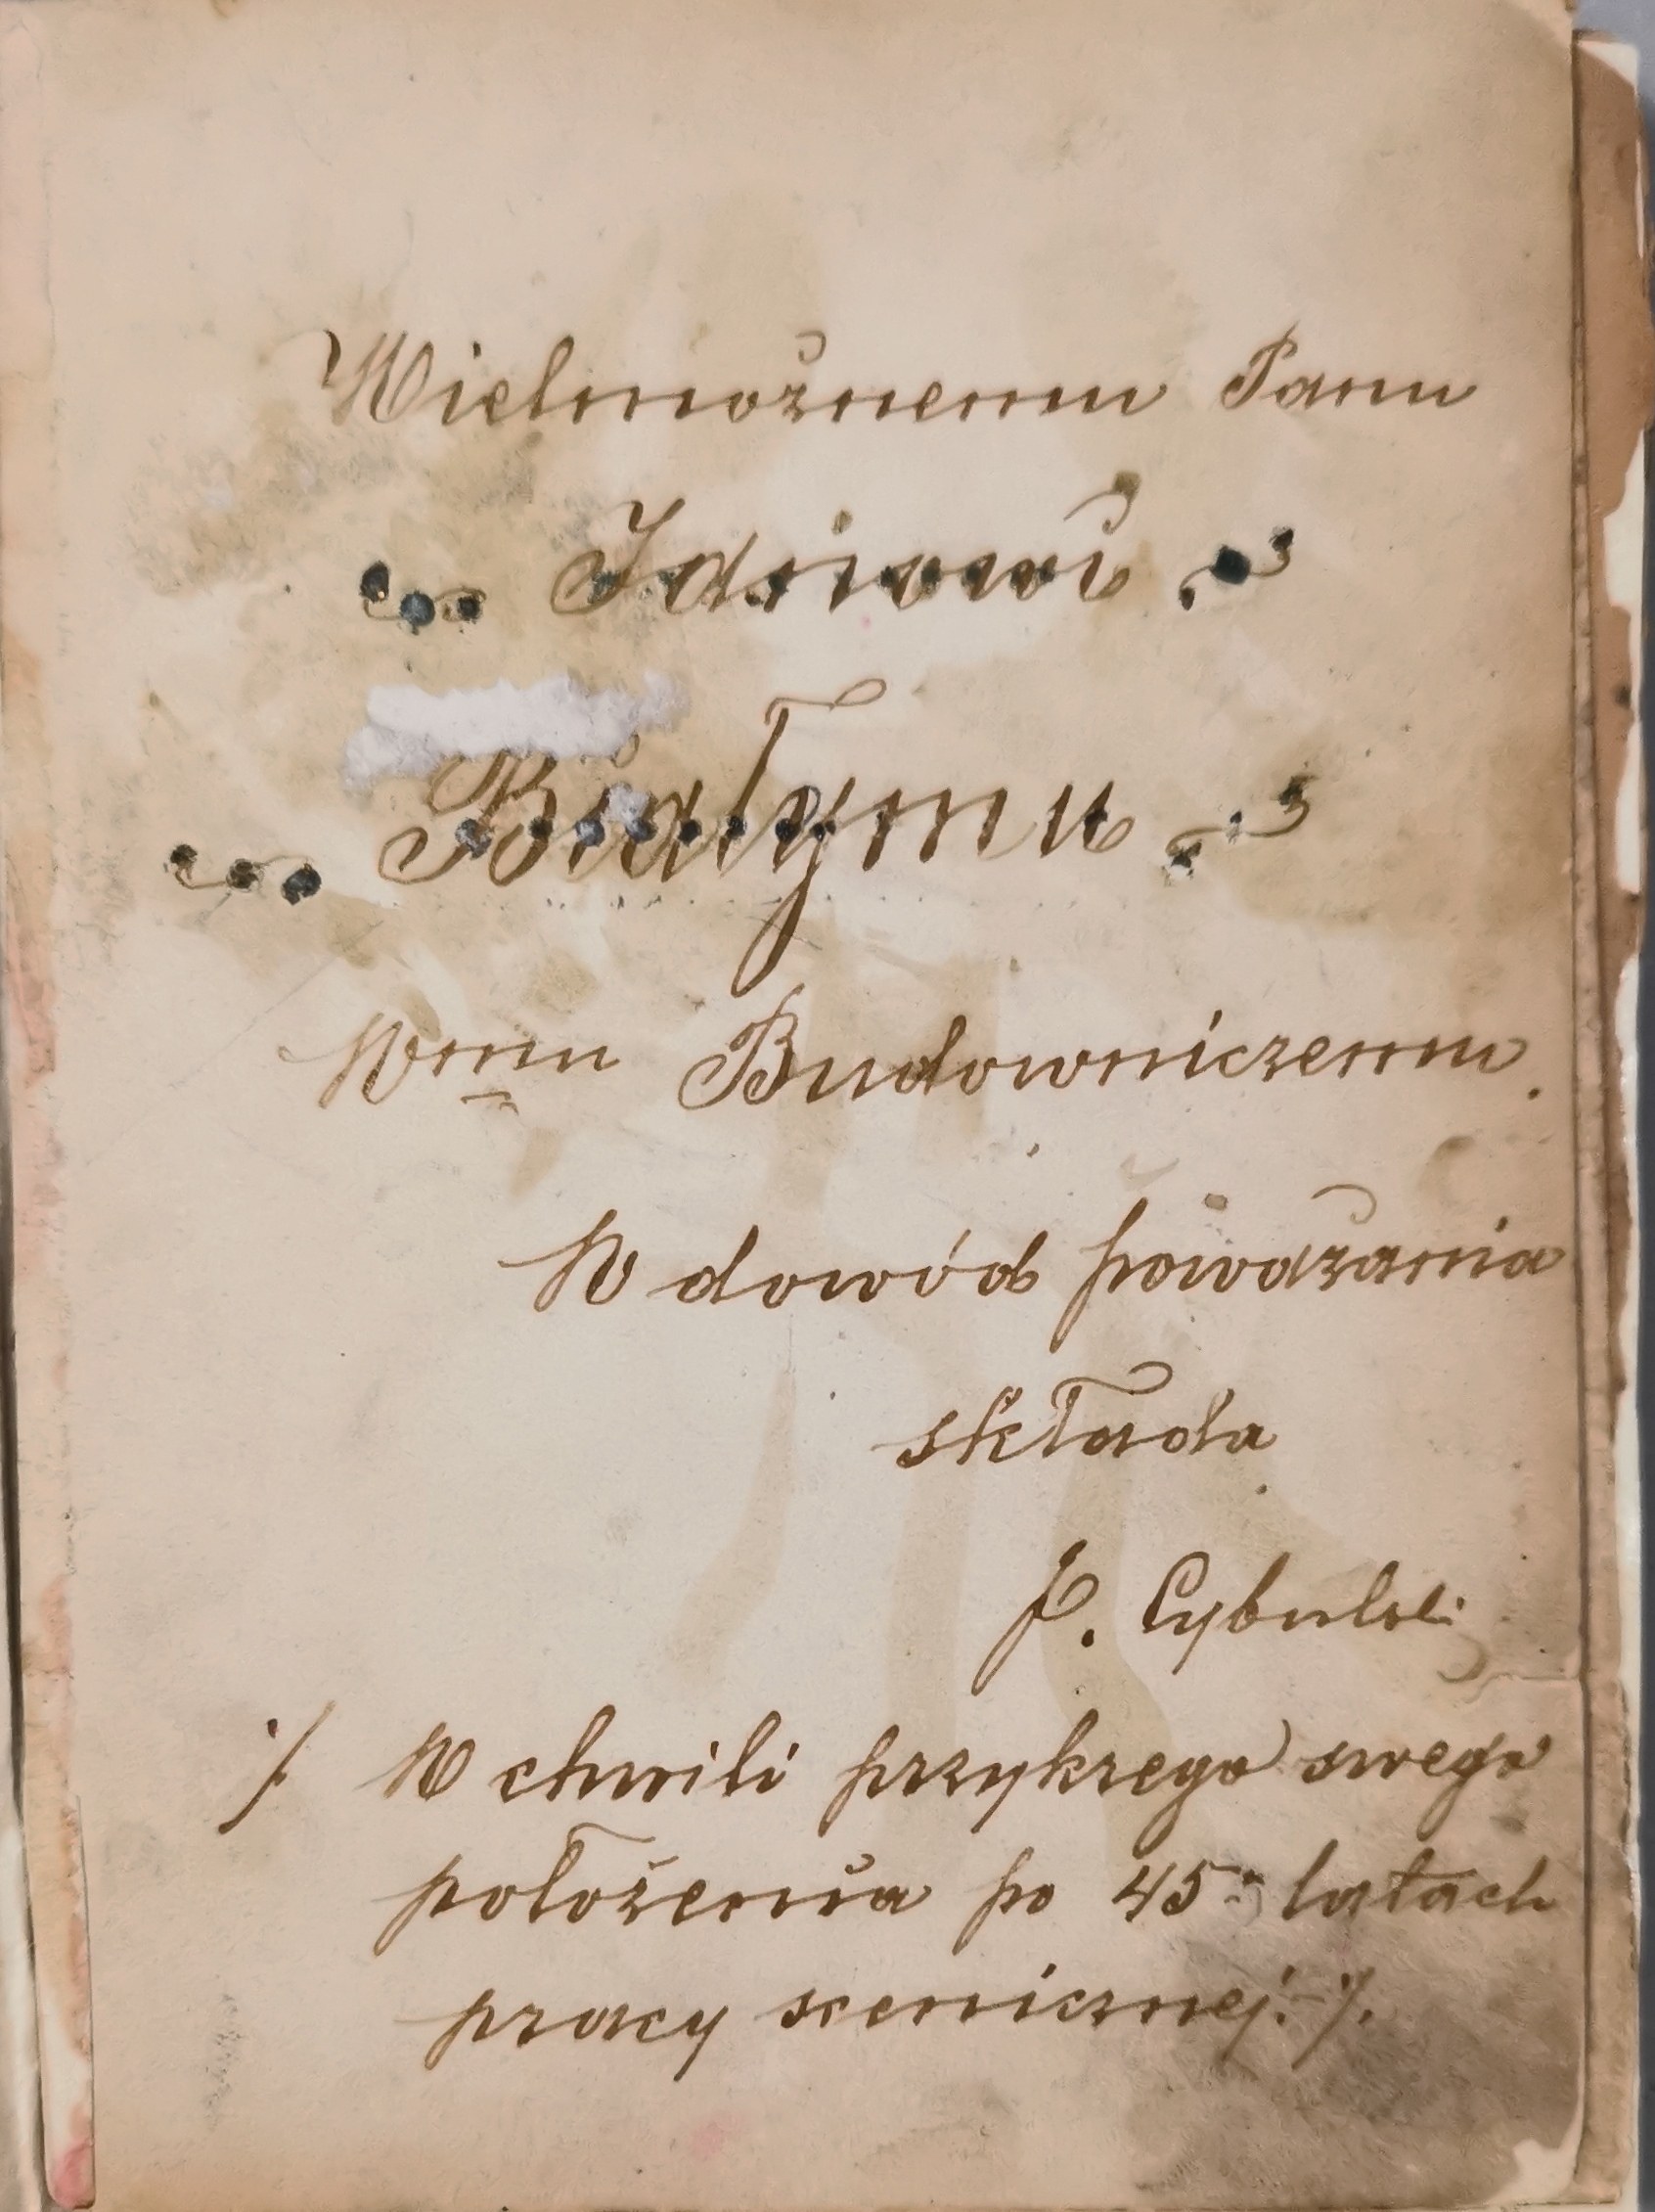 Wielmożnemu Panu
Idziowi
Białymu
Wmu Budowniczemu.
W dowód poważania
składa
J. Cybulski
/. W chwili przykrego swego
położenia po 45 latach
pracy scenicznej. /.